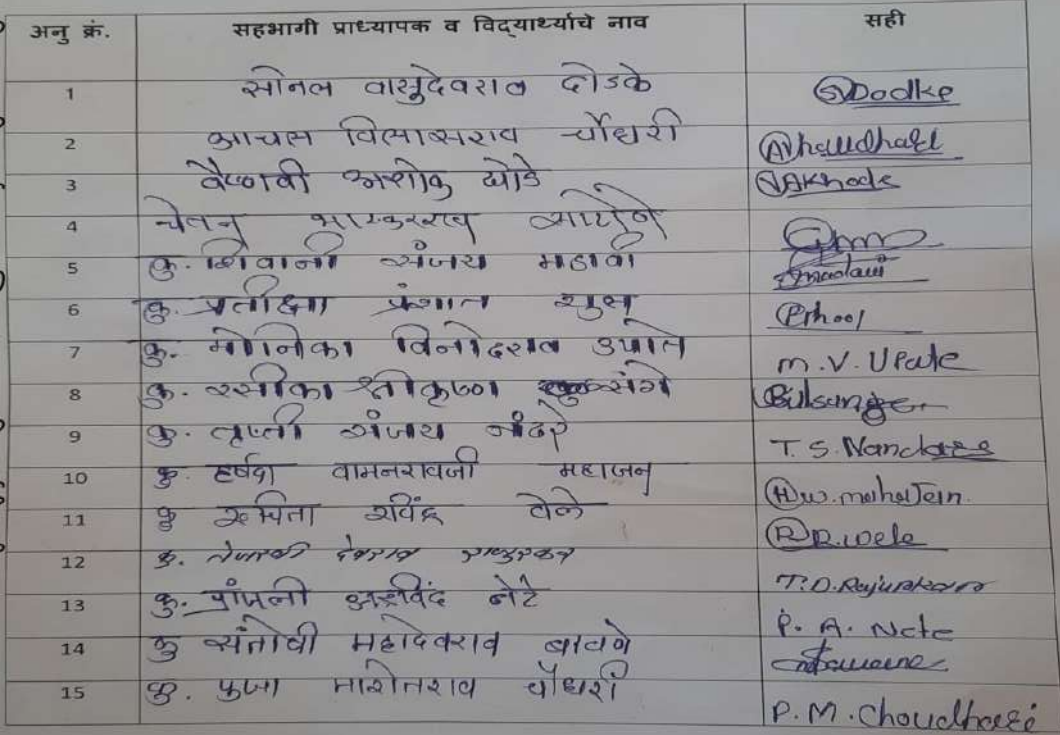 अनु क्रं. सहभागी प्राध्यापक व विद्यार्थ्यांचे नाव सही
1 सोनल वासुदेवराव दोडके S Dodke
2 आचल विलासराव चौधरी
3 वैष्णवी अशोक खोडे VAKhode
4 चेतन भास्करराव
5 कु. शिवानी संजय मडावी Smadavi
6 कु. प्रतीक्षा प्रशांत थुल Pthool
7 कु. मोनिका विनोदराव उपाते M.V. Upate
8 कु. रसीका श्रीकृष्ण
9 कु. तृप्ती संजय नंदरे T. S. Nandare
10 कु. हर्षदा वामनरावजी महाजन H.W. mahajan.
11 कु रुचिता रविंद्र वेले R R.wele
12 कु. तेजस्वी देवराव राजुरकर T.D.Rajurakara
13 कु. प्रांजली अरविंद नेटे P. A. Nete
14 कु संतोषी महादेवराव बावणे
15 कु. पुजा मारोतराव चौधरी P.M. Choudhari